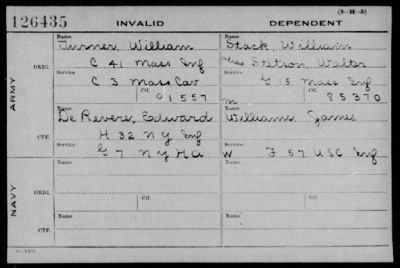 126435 INVALID DEPENDENT
Name Name
Turner, William Stack, William
alias Stetson Walter
ORIG. C 41 Mass Inf
Service Service
G 15 Mass Inf
C 3 Mass Cav
Ctf. Ctf.
C 1557 85370
ARMY
Name Name
m
De Revere, Edward Williams, James
H 32 N Y Inf
CTF. Service Service
G 7 N Y H A W F 57 U S C Inf
Name Name
ORIG.
Service Ctf. Service Ctf.
NAVY
Name Name
CTF.
Service Service